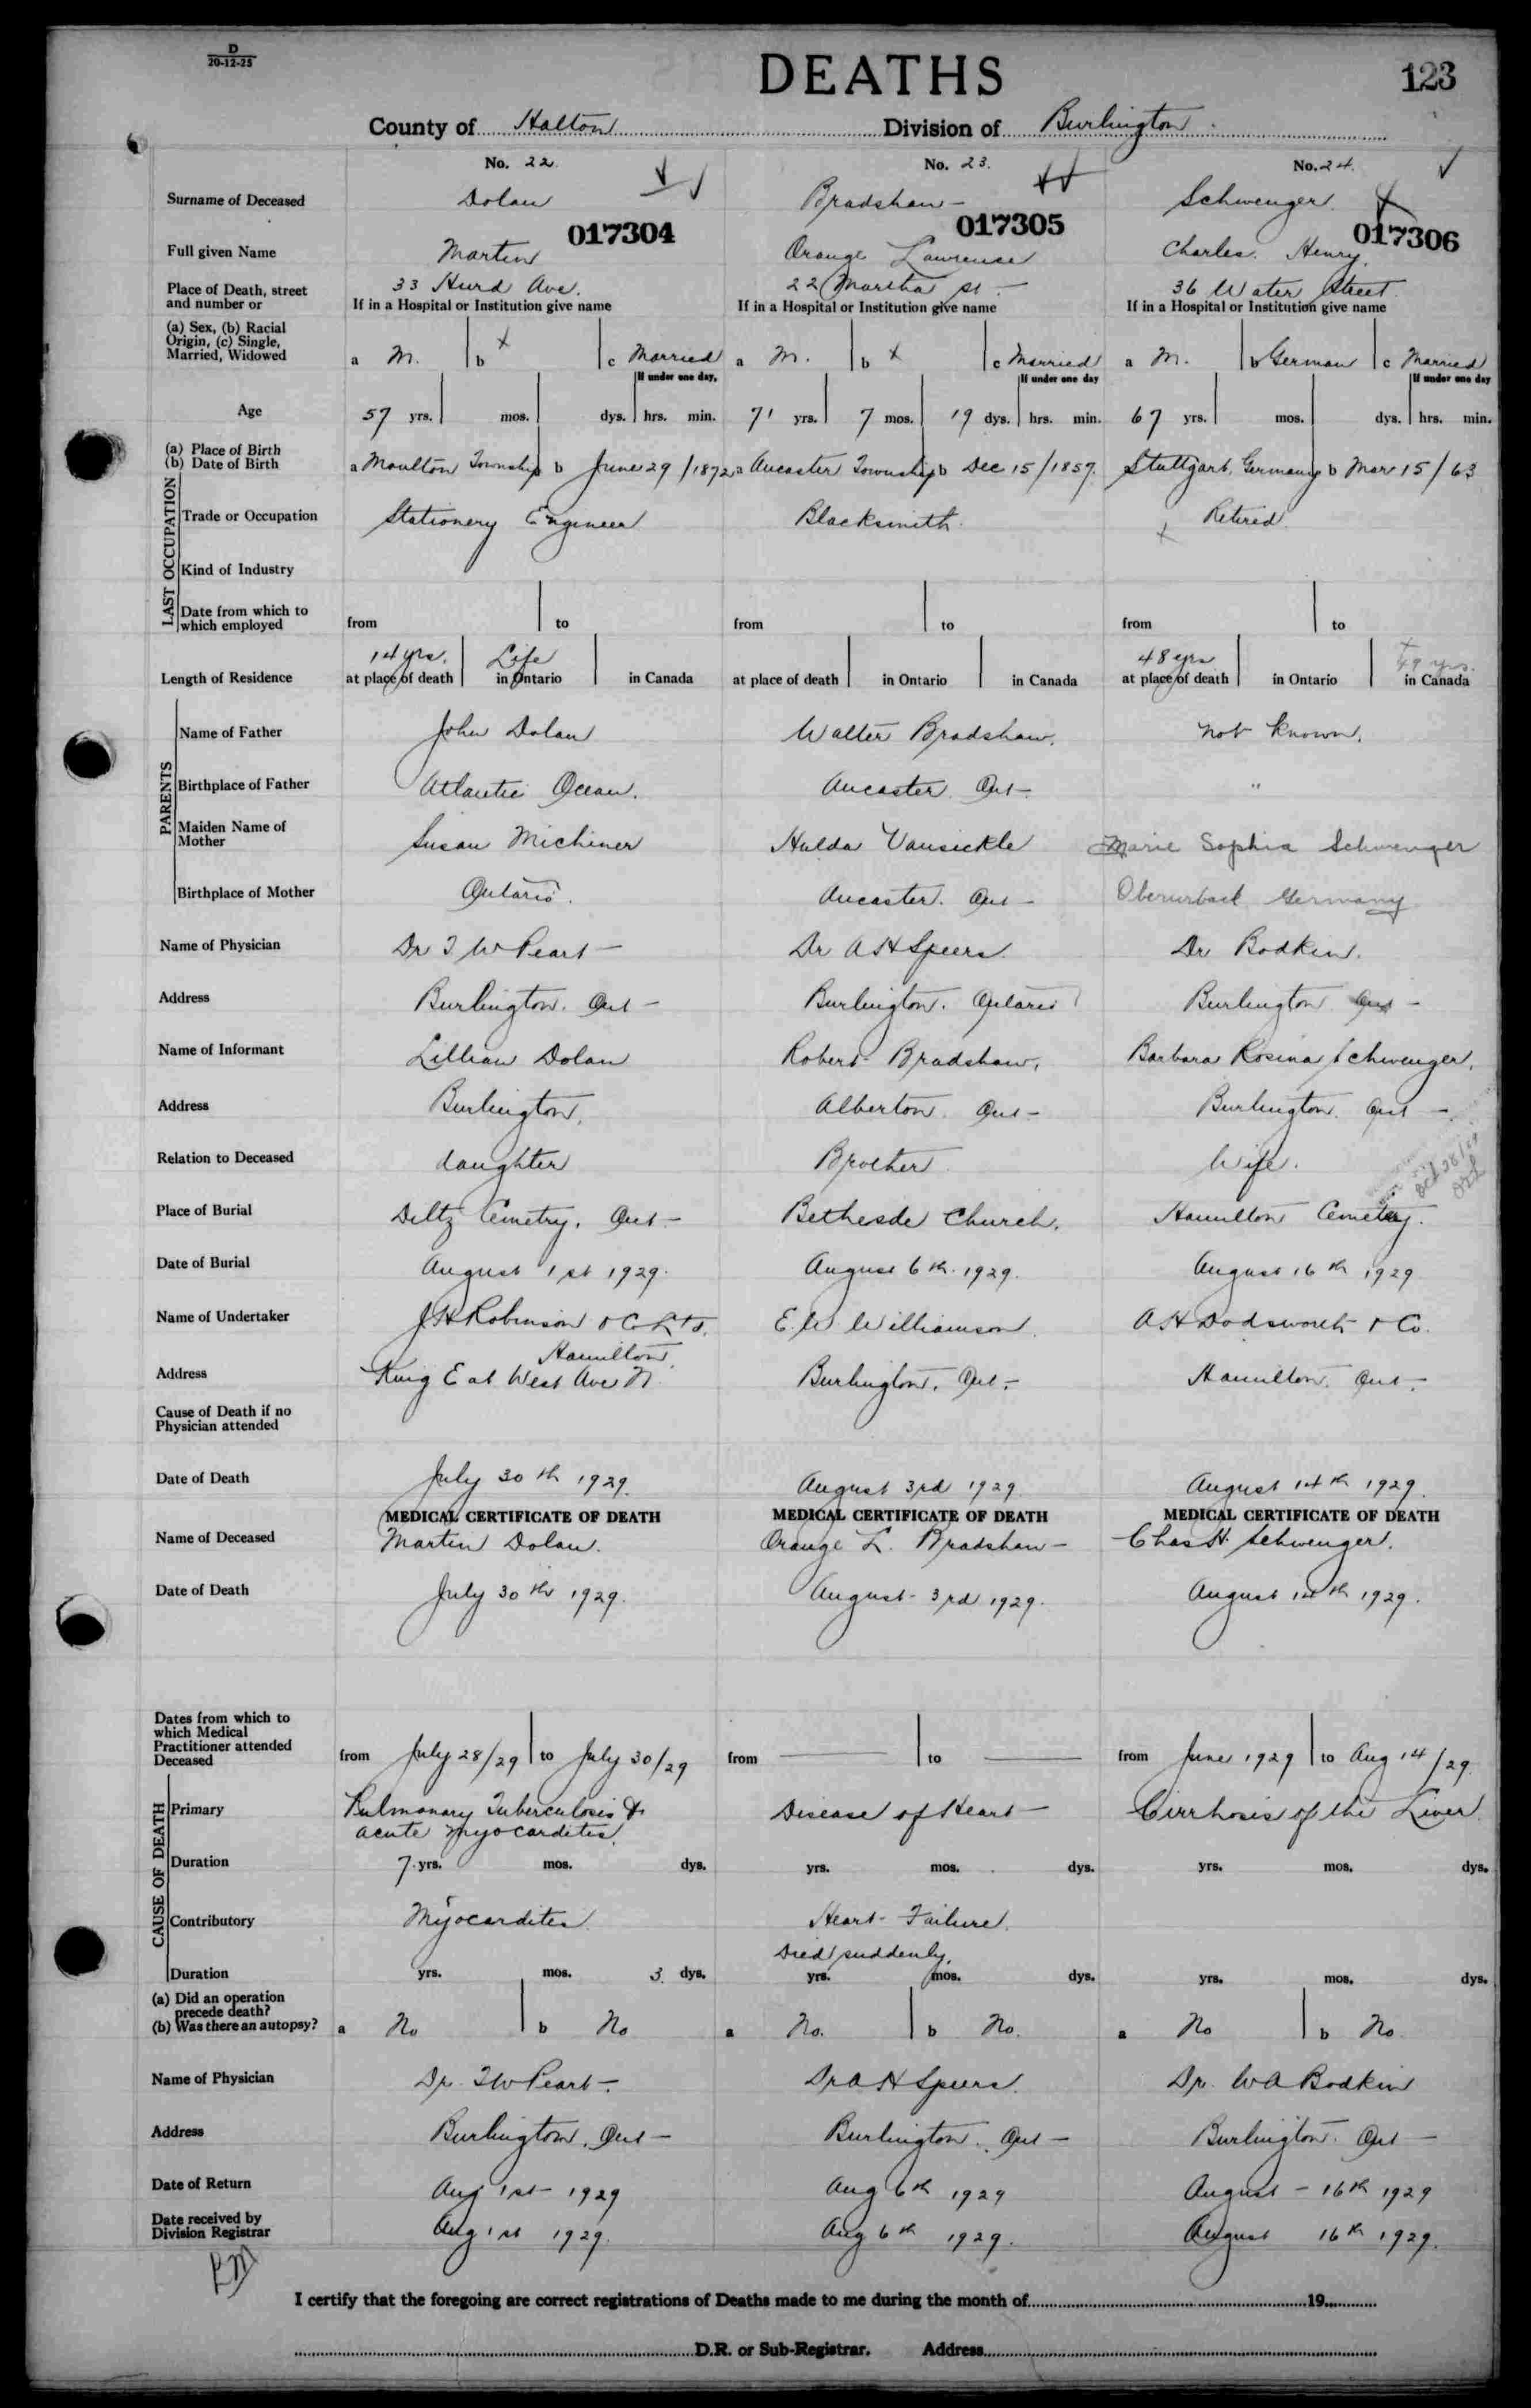 D
20-12-25
DEATHS
123
County of Halton Division of Burlington
No. 22. No. 23. No. 24.
Surname of Deceased Dolan Bradshaw Schwenger
017304 017305 017306
Full given Name Martin Orange Lawrence Charles Henry
Place of Death, street and number or 33 Hurd Ave. 22 Martha St 36 Water Street
If in a Hospital or Institution give name If in a Hospital or Institution give name If in a Hospital or Institution give name
(a) Sex, (b) Racial Origin, (c) Single, Married, Widowed a M. b x c Married a M. b x c Married a M. b German c Married
If under one day, If under one day If under one day
Age 57 yrs. mos. dys. hrs. min. 71 yrs. 7 mos. 19 dys. hrs. min. 67 yrs. mos. dys. hrs. min.
(a) Place of Birth (b) Date of Birth a Moulton Township b June 29/1872 a Ancaster Township b Dec 15/1857. Stuttgart, Germany b Mar 15/63
LAST OCCUPATION
Trade or Occupation Stationery Engineer Blacksmith Retired
Kind of Industry
Date from which to which employed from to from to from to
14 yrs. Life 48 yrs 49 yrs.
Length of Residence at place of death in Ontario in Canada at place of death in Ontario in Canada at place of death in Ontario in Canada
PARENTS
Name of Father John Dolan Walter Bradshaw. not known.
Birthplace of Father Atlantic Ocean. Ancaster Ont "
Maiden Name of Mother Susan Michiner Hulda Vansickle Marie Sophia Schwenger
Birthplace of Mother Ontario. Ancaster. Ont Germany
Name of Physician Dr T W Peart Dr A H Speers. Dr Bodkin.
Address Burlington. Ont Burlington. Ontario Burlington Ont
Name of Informant Lillian Dolan Robert Bradshaw, Barbara Rosina Schwenger.
Address Burlington, Alberton Ont Burlington Ont
Relation to Deceased daughter Brother Wife.
Oct 28/29
Place of Burial Diltz Cemetry. Ont Bethesde Church. Hamilton Cemetery.
Date of Burial August 1st 1929. August 6th 1929. August 16th 1929
Name of Undertaker J H Robinson & Co Ltd. E. W. Williamson A H Dodsworth & Co.
Hamilton
Address King E at West Ave N. Burlington, Ont. Hamilton. Ont.
Cause of Death if no Physician attended
Date of Death July 30th 1929. August 3rd 1929 August 14th 1929.
MEDICAL CERTIFICATE OF DEATH MEDICAL CERTIFICATE OF DEATH MEDICAL CERTIFICATE OF DEATH
Name of Deceased Martin Dolan. Orange L. Bradshaw Chas H. Schwenger.
Date of Death July 30th 1929. August 3rd 1929. August 14th 1929.
Dates from which to which Medical Practitioner attended Deceased from July 28/29 to July 30/29 from to from June 1929 to Aug 14/29
CAUSE OF DEATH
Primary Pulmonary Tuberculosis & acute myocarditis. Disease of Heart Cirrhosis of the Liver
Duration 7 yrs. mos. dys. yrs. mos. dys. yrs. mos. dys.
Contributory Myocardites Heart Failure.
Died suddenly.
Duration yrs. mos. 3 dys. yrs. mos. dys. yrs. mos. dys.
(a) Did an operation precede death? (b) Was there an autopsy? a No b No a No. b No. a No b No.
Name of Physician Dr. T W Peart Dr A H Speers. Dr. W A Bodkin
Address Burlington, Ont Burlington. Ont Burlington. Ont
Date of Return Aug 1st 1929 Aug 6th 1929 August 16th 1929
Date received by Division Registrar Aug 1st 1929. Aug 6th 1929. August 16th 1929.
I certify that the foregoing are correct registrations of Deaths made to me during the month of 19
D.R. or Sub-Registrar. Address